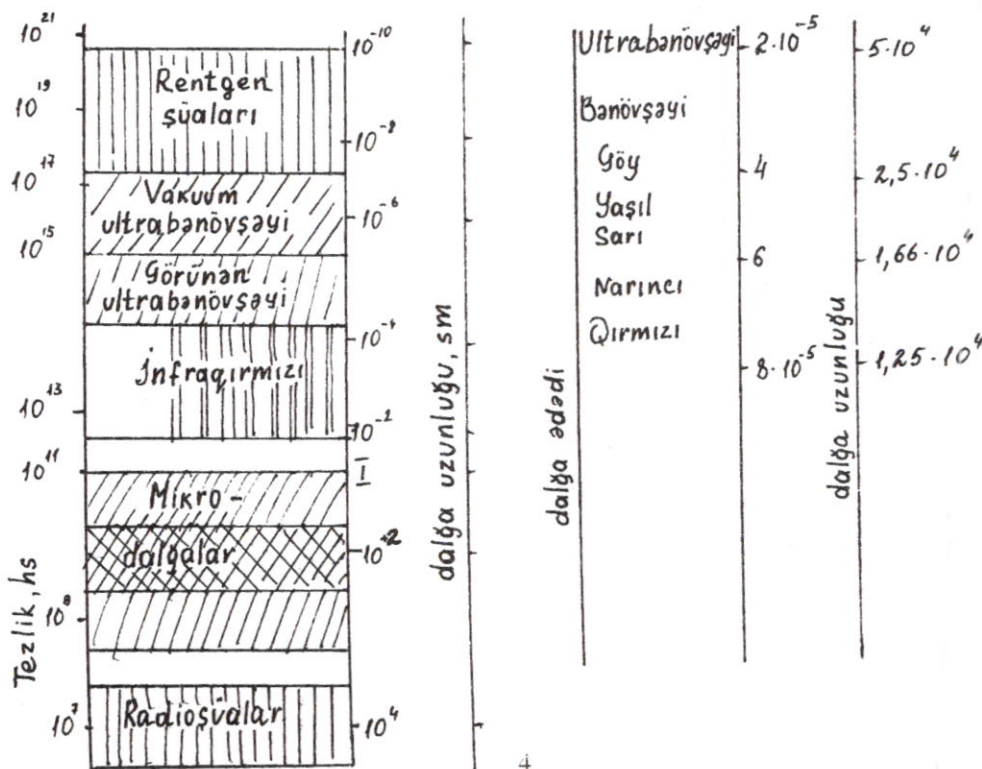 10²¹
10¹⁹
10¹⁷
10¹⁵
10¹³
10¹¹
10⁸
10⁷
Tezlik, hs
Rentgen
şüaları
Vakuum
ultrabənövşəyi
Görünən
ultrabənövşəyi
İnfraqırmızı
Mikro-
dalğalar
Radioşüalar
10⁻¹⁰
10⁻⁸
10⁻⁶
10⁻⁴
10⁻²
I
10⁺²
10⁴
dalğa uzunluğu, sm
dalğa ədədi
Ultrabənövşəyi
Bənövşəyi
Göy
Yaşıl
Sarı
Narıncı
Qırmızı
2·10⁻⁵
4
6
8·10⁻⁵
dalğa uzunluğu
5·10⁴
2,5·10⁴
1,66·10⁴
1,25·10⁴
4